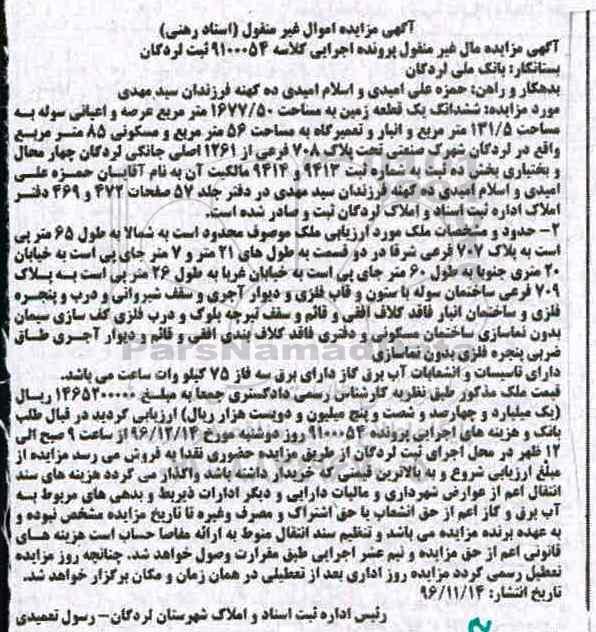 آگهی مزایده اموال غیر منقول (اسناد رهنی)
آگهی مزایده مال غیر منقول پرونده اجرایی کلاسه ۹۱۰۰۰۵۴ ثبت لردگان
بستانکار: بانک ملی لردگان
بدهکار و راهن: حمزه علی امیدی و اسلام امیدی ده کهنه فرزندان سید مهدی
مورد مزایده: ششدانگ یک قطعه زمین به مساحت ۱۶۷۷/۵۰ متر مربع عرصه و اعیانی سوله به
مساحت ۱۳۱/۵ متر مربع و انبار و تعمیرگاه به مساحت ۵۶ متر مربع و مسکونی ۸۵ متر مربع
واقع در لردگان شهرک صنعتی تحت پلاک ۷۰۸ فرعی از ۱۲۶۱ اصلی جانکی لردگان چهار محال
و بختیاری بخش ده ثبت به شماره ثبت ۹۴۱۳ و ۹۴۱۴ مالکیت آن به نام آقایان حمزه علی
امیدی و اسلام امیدی ده کهنه فرزندان سید مهدی در دفتر جلد ۵۷ صفحات ۴۷۲ و ۴۶۹ دفتر
املاک اداره ثبت اسناد و املاک لردگان ثبت و صادر شده است.
۲- حدود و مشخصات ملک مورد ارزیابی ملک موصوف محدود است به شمالا به طول ۶۵ متر پی
است به پلاک ۷۰۷ فرعی شرقا در دو قسمت به طول های ۲۱ متر و ۷ متر جای پی است به خیابان
۲۰ متری جنوبا به طول ۶۰ متر جای پی است به خیابان غربا به طول ۲۶ متر پی است به پلاک
۷۰۹ فرعی ساختمان سوله با ستون و قاب فلزی و دیوار آجری و سقف شیروانی و درب و پنجره
فلزی و ساختمان انبار فاقد کلاف افقی و قائم و سقف تیرچه بلوک و درب فلزی کف سازی سیمان
بدون نماسازی ساختمان مسکونی و دفتری فاقد کلاف بندی افقی و قائم و دیوار آجری طاق
ضربی پنجره فلزی بدون نماسازی
دارای تاسیسات و انشعابات آب برق گاز دارای برق سه فاز ۷۵ کیلو وات ساعت می باشد.
قیمت ملک مذکور طبق نظریه کارشناس رسمی دادگستری جمعا به مبلغ ۱۴۶۵۲۰۰۰۰۰ ریال
(یک میلیارد و چهارصد و شصت و پنج میلیون و دویست هزار ریال) ارزیابی گردید در قبال طلب
بانک و هزینه های اجرایی پرونده ۹۱۰۰۰۵۴ روز دوشنبه مورخ ۹۶/۱۲/۱۴ از ساعت ۹ صبح الی
۱۲ ظهر در محل اجرای ثبت لردگان از طریق مزایده حضوری نقدا به فروش می رسد مزایده از
مبلغ ارزیابی شروع و به بالاترین قیمتی که خریدار داشته باشد واگذار می گردد هزینه های سند
انتقال اعم از عوارض شهرداری و مالیات دارایی و دیگر ادارات ذیربط و بدهی های مربوط به
آب برق و گاز اعم از حق انشعاب یا حق اشتراک و مصرف وغیره تا تاریخ مزایده مشخص نبوده و
به عهده برنده مزایده می باشد و تنظیم سند انتقال منوط به ارائه مفاصا حساب است هزینه های
قانونی اعم از حق مزایده و نیم عشر اجرایی طبق مقرارت وصول خواهد شد. چنانچه روز مزایده
تعطیل رسمی گردد مزایده روز اداری بعد از تعطیلی در همان زمان و مکان برگزار خواهد شد.
تاریخ انتشار: ۹۶/۱۱/۱۴
رئیس اداره ثبت اسناد و املاک شهرستان لردگان- رسول تعمیدی